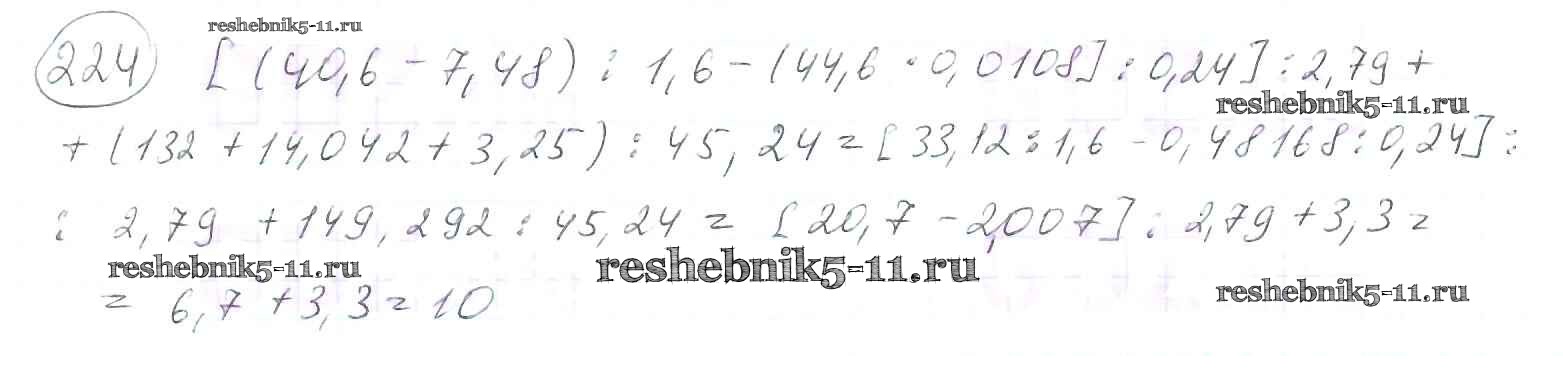 reshebnik5-11.ru
224 [(40,6 - 7,48) : 1,6 - (44,6 · 0,0108] : 0,24] : 2,79 +
reshebnik5-11.ru
+ (132 + 14,042 + 3,25) : 45,24 = [33,12 : 1,6 - 0,48168 : 0,24] :
: 2,79 + 149,292 : 45,24 = [20,7 - 2,007] : 2,79 + 3,3 =
reshebnik5-11.ru reshebnik5-11.ru reshebnik5-11.ru
= 6,7 + 3,3 = 10